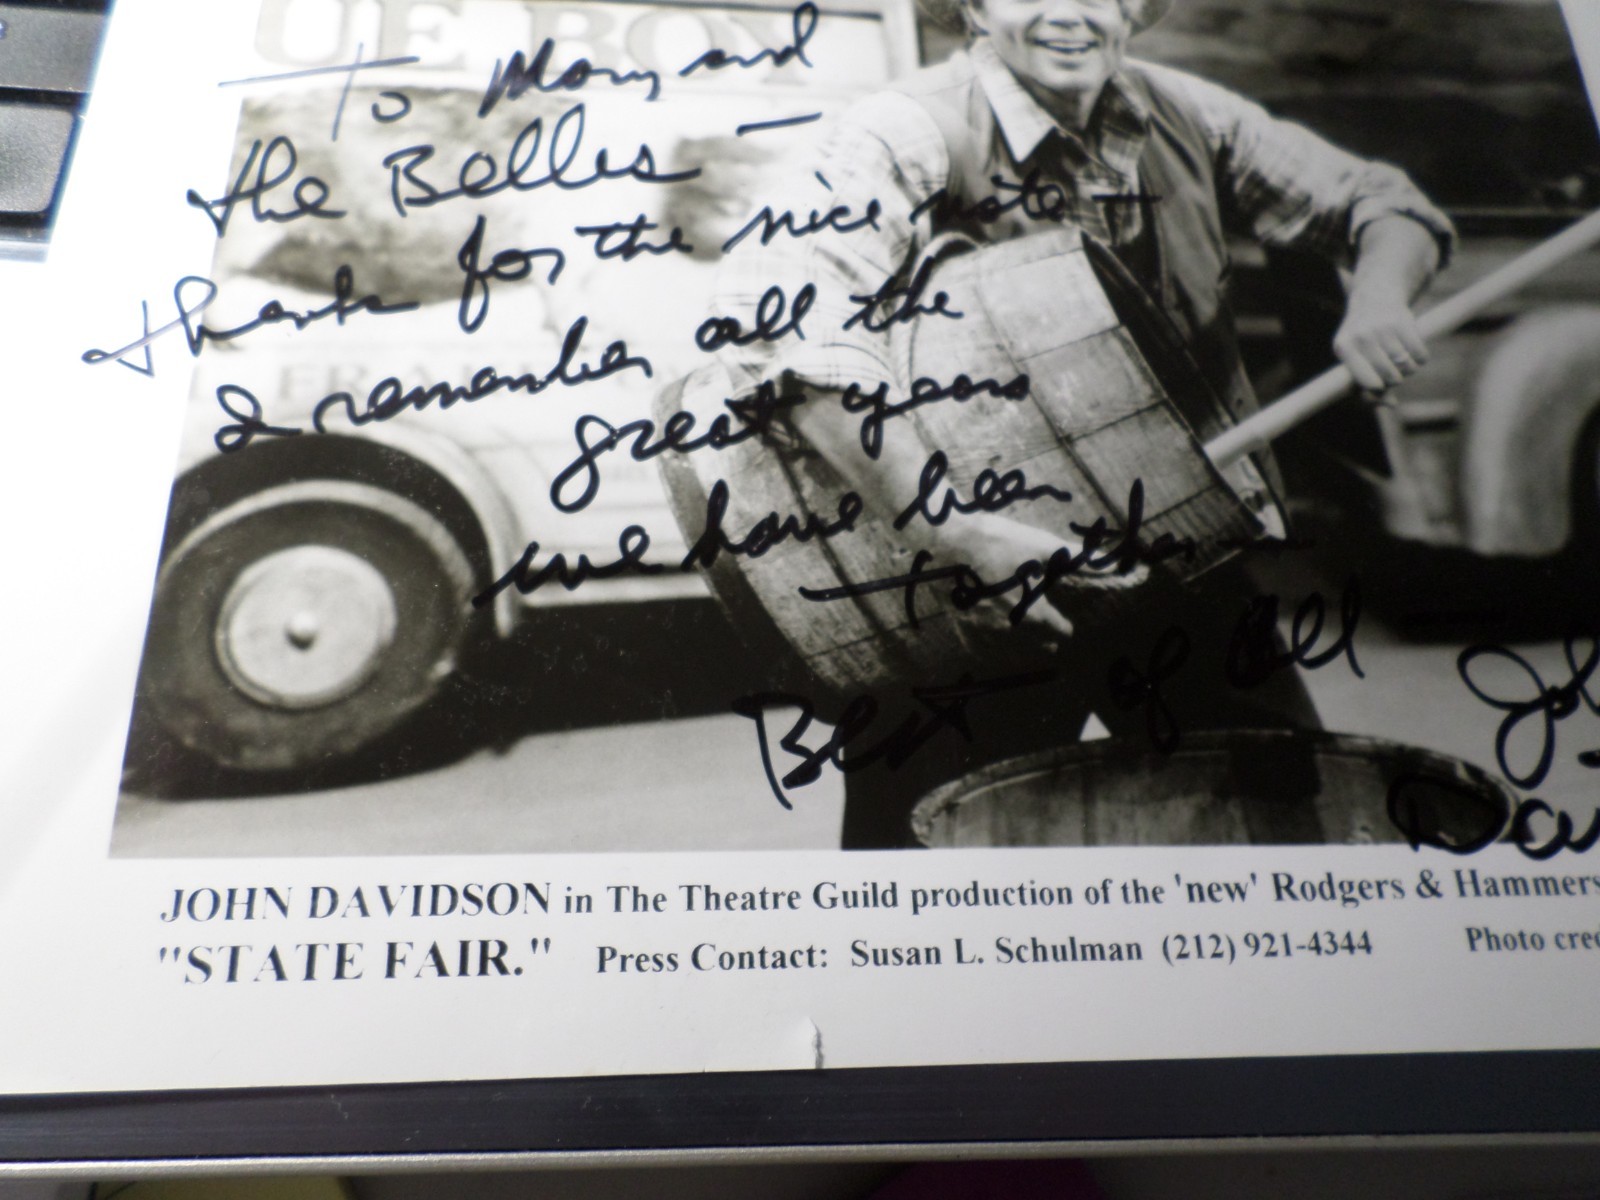 UE BOY
To Mary and
the Belles —
thank for the nice note —
I remember all the
great years
we have been
together —
Best of all
Joh
Dav
JOHN DAVIDSON in The Theatre Guild production of the 'new' Rodgers & Hammers
"STATE FAIR." Press Contact: Susan L. Schulman (212) 921-4344 Photo cre